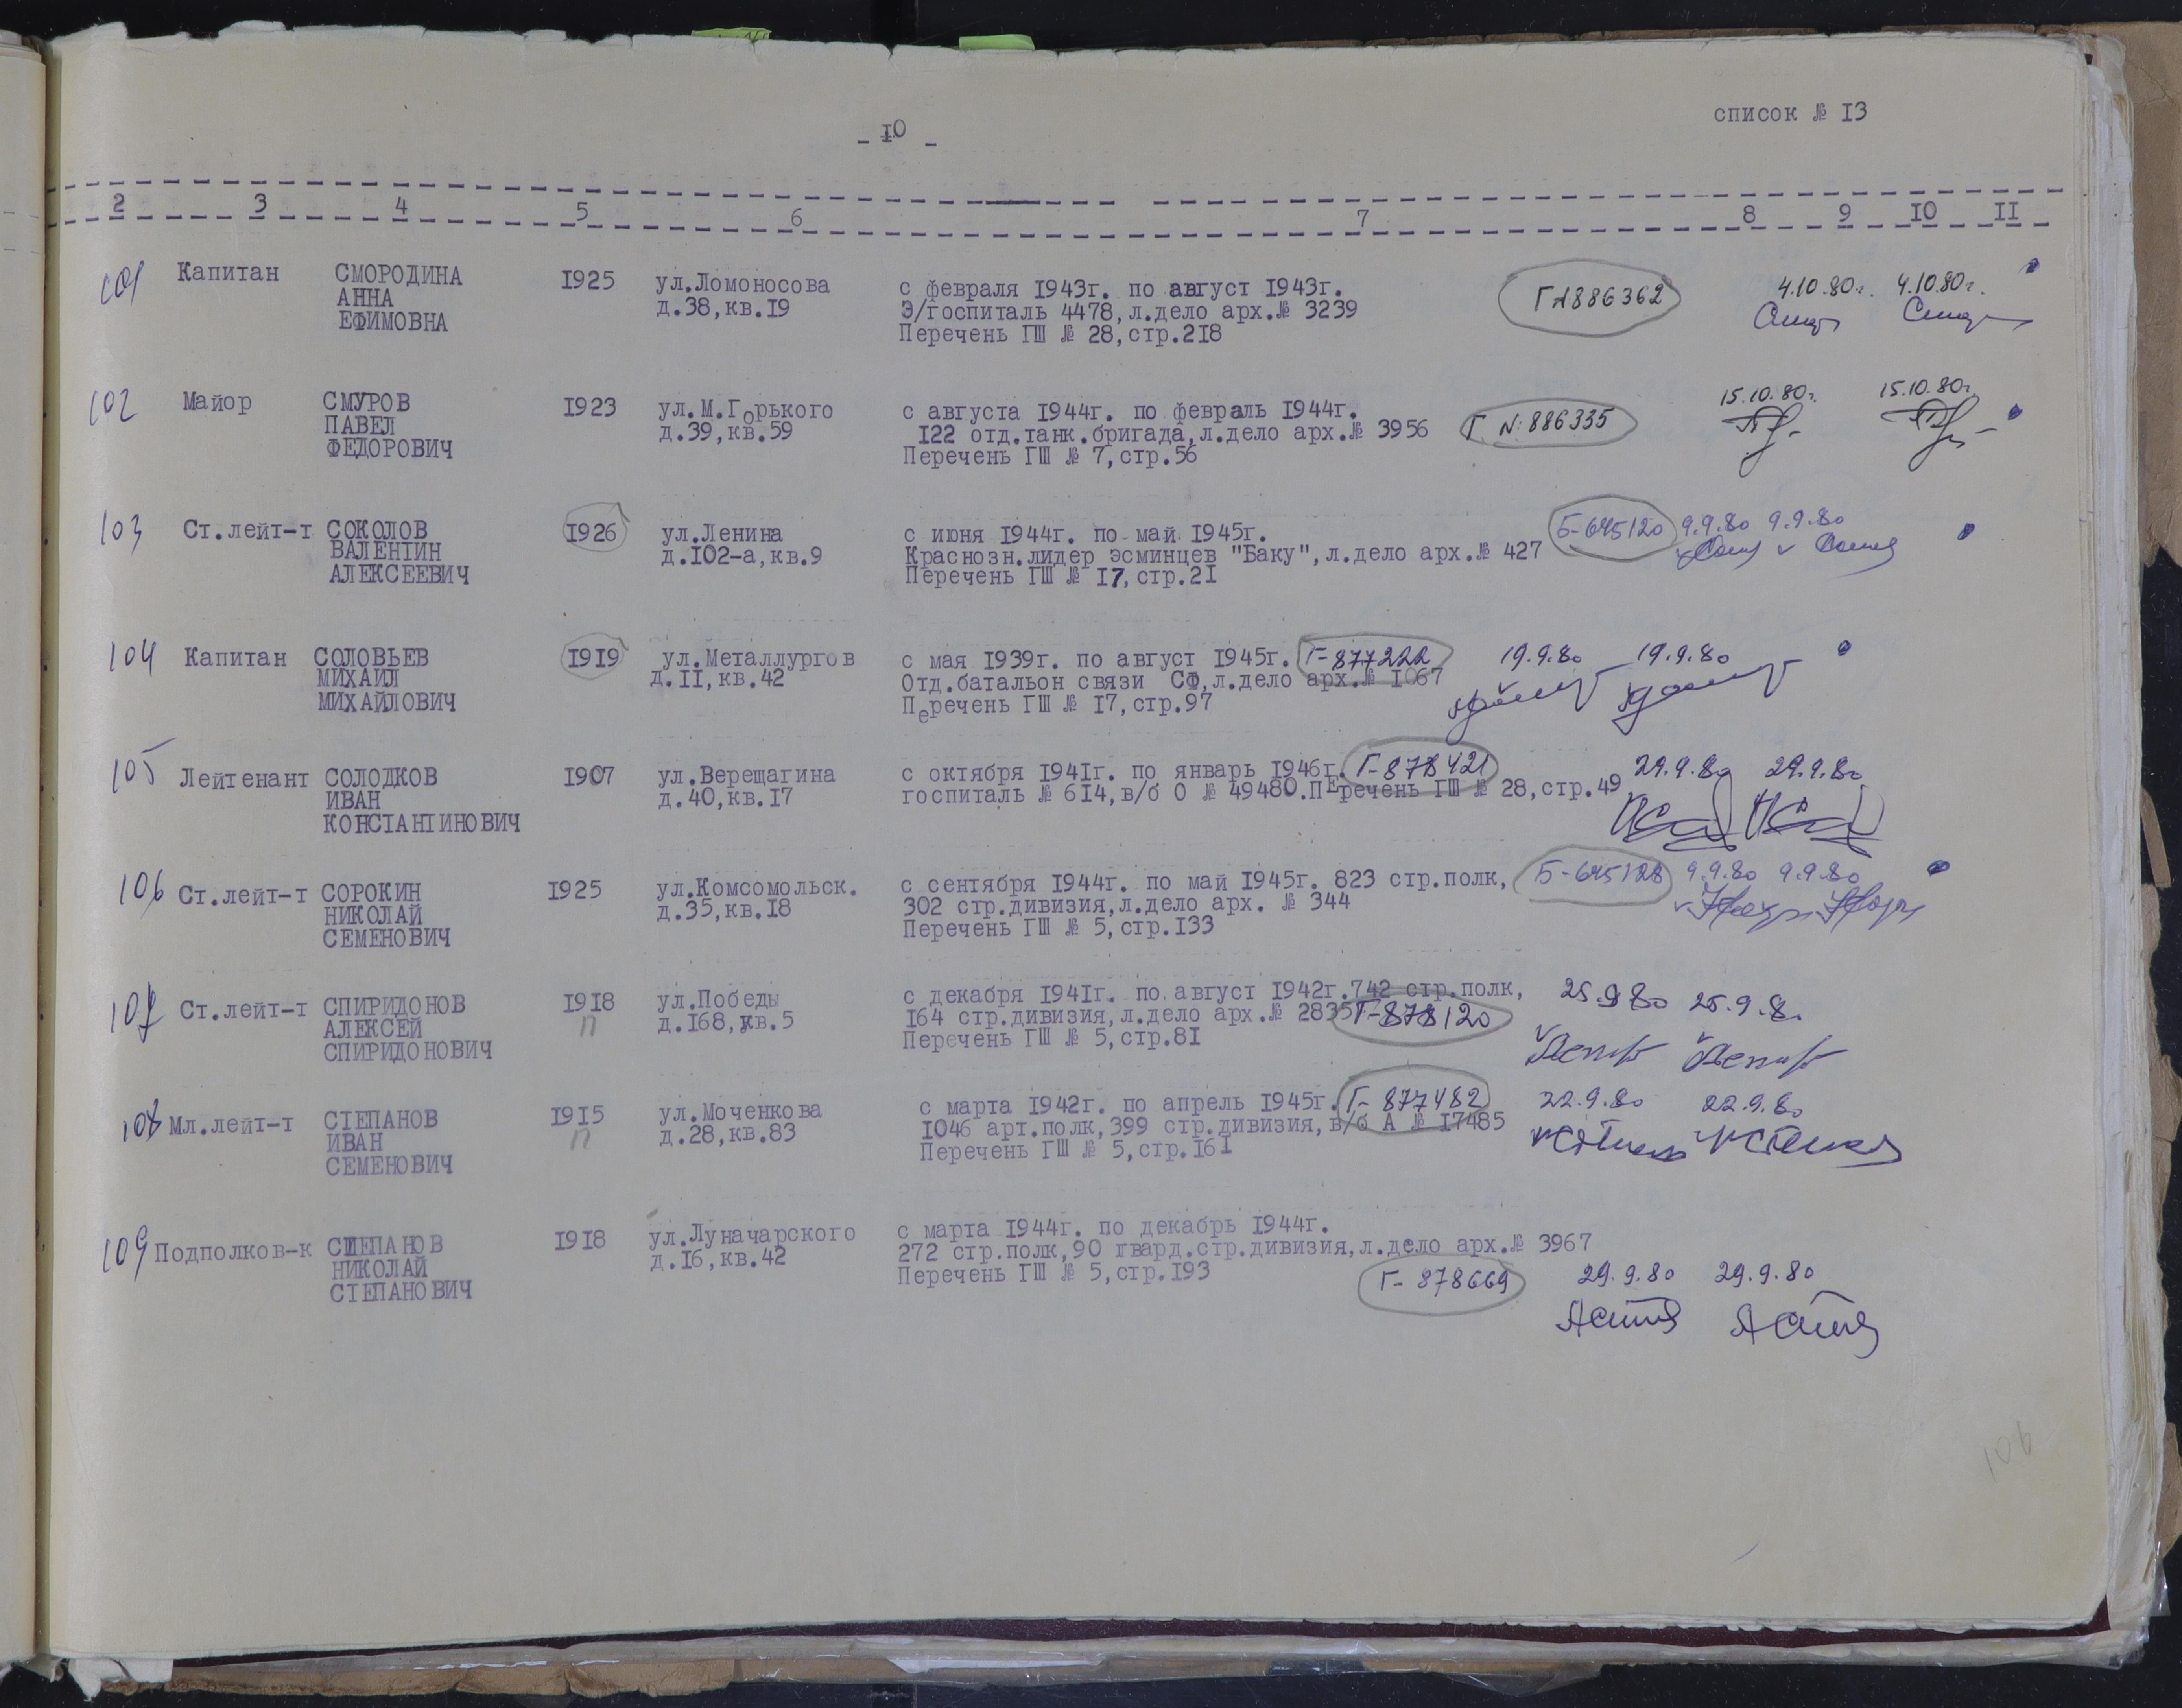 список № I3
- I0 -
2 3 4 5 6 7 8 9 I0 II
101 Капитан СМОРОДИНА I925 ул.Ломоносова с февраля I943г. по август I943г. ГА 886362 4.10.80г. 4.10.80г.
АННА д.38,кв.I9 Э/госпиталь 4478,л.дело арх.№ 3239
ЕФИМОВНА Перечень ГШ № 28,стр.2I8
102 Майор СМУРОВ I923 ул.М.Горького с августа I944г. по февраль I944г. Г N: 886335 15.10.80г. 15.10.80г.
ПАВЕЛ д.39,кв.59 I22 отд.танк.бригада,л.дело арх.№ 3956
ФЕДОРОВИЧ Перечень ГШ № 7,стр.56
103 Ст.лейт-т СОКОЛОВ I926 ул.Ленина с июня I944г. по май I945г. Б-645120 9.9.80 9.9.80
ВАЛЕНТИН д.I02-а,кв.9 Краснозн.лидер эсминцев "Баку",л.дело арх.№ 427
АЛЕКСЕЕВИЧ Перечень ГШ № I7,стр.2I
104 Капитан СОЛОВЬЕВ I9I9 ул.Металлургов с мая I939г. по август I945г. Г-877222 19.9.80 19.9.80
МИХАИЛ д.II,кв.42 Отд.батальон связи СФ,л.дело арх.№ I067
МИХАЙЛОВИЧ Перечень ГШ № I7,стр.97
105 Лейтенант СОЛОДКОВ I907 ул.Верещагина с октября I94Iг. по январь I946г. Г-878421 29.9.80 29.9.80
ИВАН д.40,кв.I7 госпиталь № 6I4,в/б О № 49480.ПЕречень ГШ № 28,стр.49
КОНСТАНТИНОВИЧ
106 Ст.лейт-т СОРОКИН I925 ул.Комсомольск. с сентября I944г. по май I945г. 823 стр.полк, Б-645128 9.9.80 9.9.80
НИКОЛАЙ д.35,кв.I8 302 стр.дивизия,л.дело арх. № 344
СЕМЕНОВИЧ Перечень ГШ № 5,стр.I33
107 Ст.лейт-т СПИРИДОНОВ I9I8 ул.Победы с декабря I94Iг. по август I942г.742 стр.полк, 25.9 80 25.9.80
АЛЕКСЕЙ П д.I68,кв.5 I64 стр.дивизия,л.дело арх.№ 2835 Г-878120
СПИРИДОНОВИЧ Перечень ГШ № 5,стр.8I
108 Мл.лейт-т СТЕПАНОВ I9I5 ул.Моченкова с марта I942г. по апрель I945г. Г-877482 22.9.80 22.9.80
ИВАН П д.28,кв.83 I046 арт.полк,399 стр.дивизия,в/б А № I7485
СЕМЕНОВИЧ Перечень ГШ № 5,стр.I6I
109 Подполков-к СТЕПАНОВ I9I8 ул.Луначарского с марта I944г. по декабрь I944г.
НИКОЛАЙ д.I6,кв.42 272 стр.полк,90 гвард.стр.дивизия,л.дело арх.№ 3967
СТЕПАНОВИЧ Перечень ГШ № 5,стр.I93 Г-878669 29.9.80 29.9.80
106